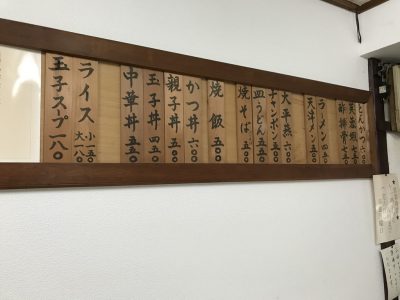 とんかつ 六〇〇
酢排骨 七五〇
天津メン 五五〇
ラーメン 四五〇
太平燕 六〇〇
チャンポン 五五〇
皿うどん 五五〇
焼そば 五五〇
焼飯 五〇〇
かつ丼 六〇〇
親子丼 五〇〇
玉子丼 四五〇
中華丼 五五〇
ライス 小一五〇 大一八〇
玉子スープ 一八〇